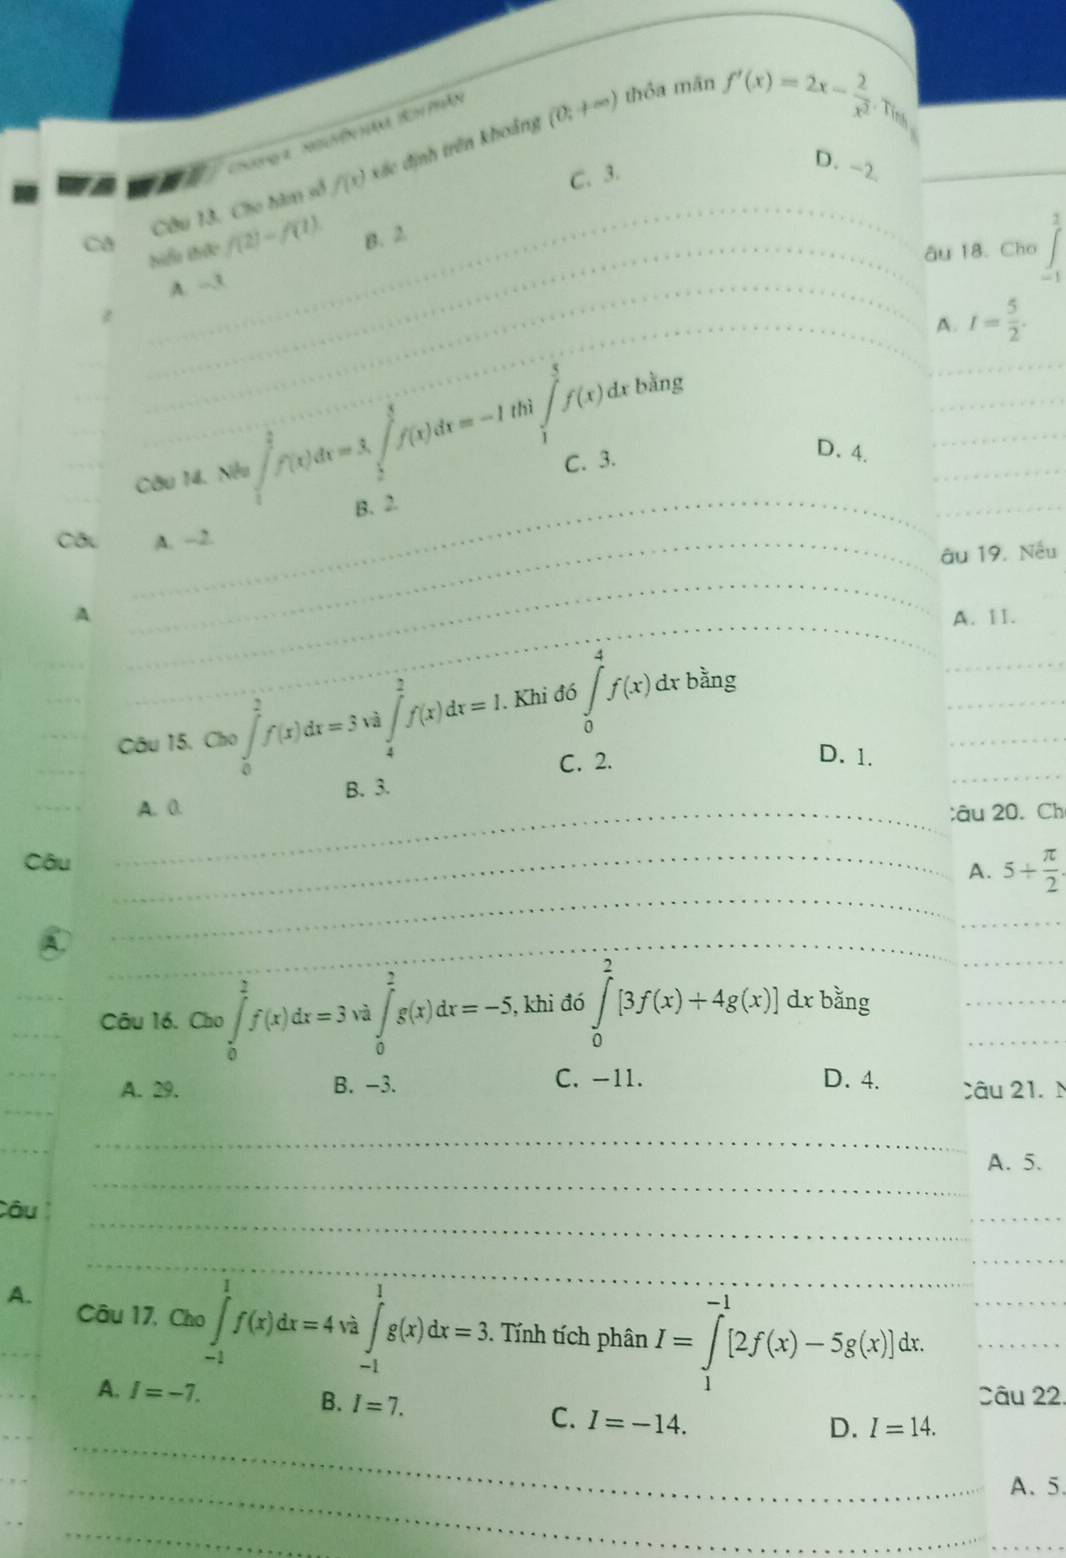 NGUYÊN HÀM, TÍCH PHÂN
Câu 13. Cho hàm số f(x) xác định trên khoảng (0; +∞) thỏa mãn f′(x) = 2x − 2/x². Tính
biểu thức f(2) − f(1).
A. −3.
B. 2.
C. 3.
D. −2.
Câu 14. Nếu ∫₁² f(x) dx = 3, ∫₂⁵ f(x) dx = −1 thì ∫₁⁵ f(x) dx bằng
A. −2.
B. 2.
C. 3.
D. 4.
Câu 15. Cho ∫₀² f(x) dx = 3 và ∫₄² f(x) dx = 1. Khi đó ∫₀⁴ f(x) dx bằng
A. 0.
B. 3.
C. 2.
D. 1.
Câu 16. Cho ∫₀² f(x) dx = 3 và ∫₀² g(x) dx = −5, khi đó ∫₀² [3f(x) + 4g(x)] dx bằng
A. 29.
B. −3.
C. −11.
D. 4.
Câu 17. Cho ∫₋₁¹ f(x) dx = 4 và ∫₋₁¹ g(x) dx = 3. Tính tích phân I = ∫₁⁻¹ [2f(x) − 5g(x)] dx.
A. I = −7.
B. I = 7.
C. I = −14.
D. I = 14.
Câ
Câu
A
Câu
A.
Câu
A.
âu 18. Cho ∫₋₁²
A. I = 5/2.
âu 19. Nếu
A. 11.
Câu 20. Ch
A. 5 + π/2.
Câu 21. N
A. 5.
Câu 22.
A. 5.